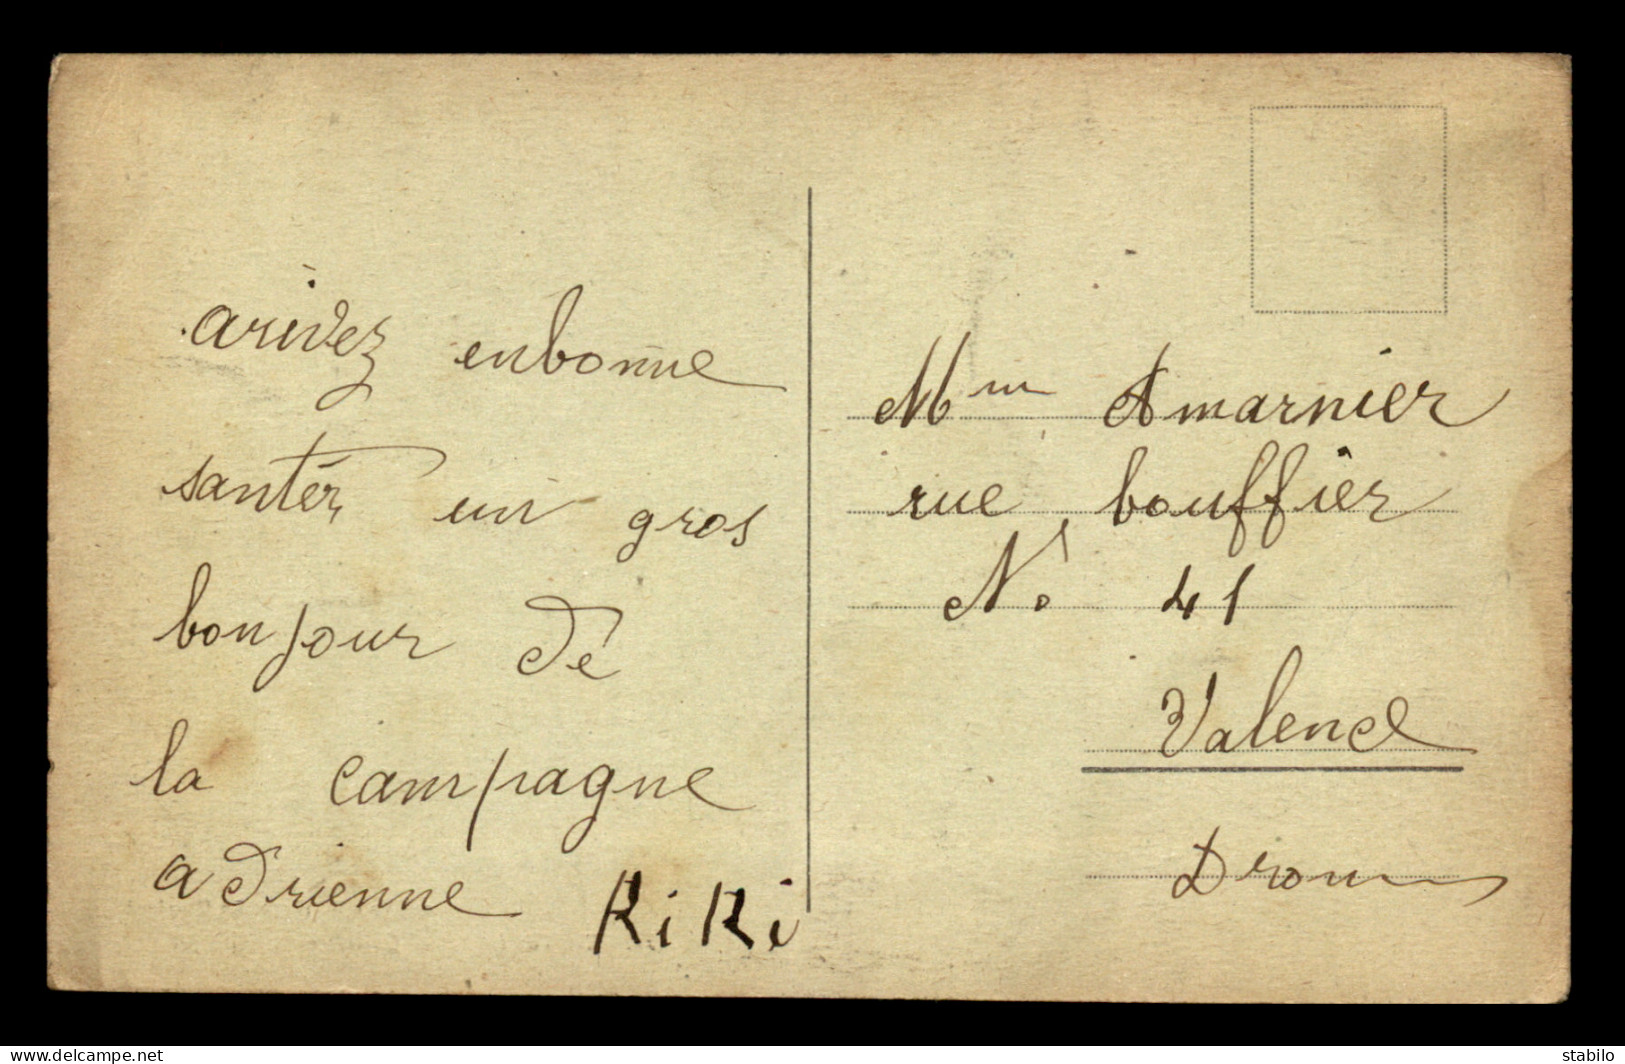 arivez enbonne
santér un gros
bonjour de
la campagne
adrienne RiRi
Mme Amarnier
rue bouffier
No 41
Valence
Drome
www.delcampe.net
stabilo